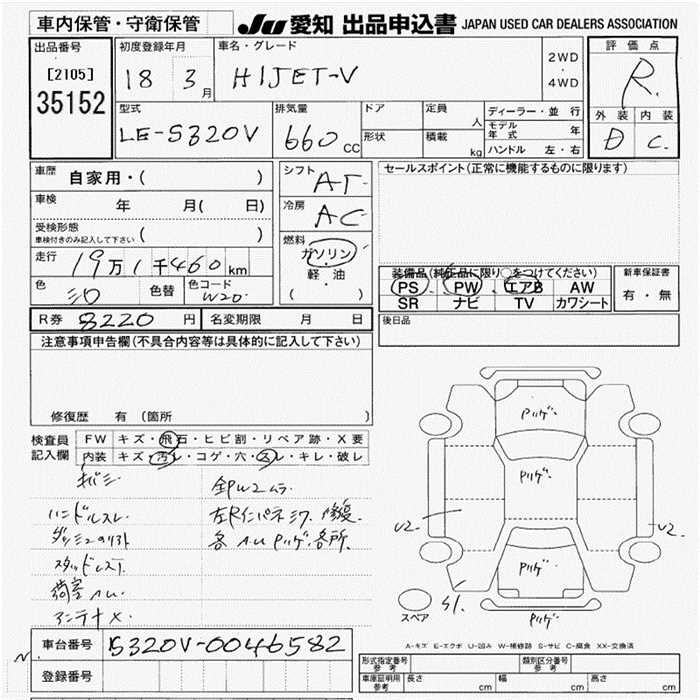 車内保管・守衛保管
JU 愛知 出品申込書 JAPAN USED CAR DEALERS ASSOCIATION
出品番号
[2105]
35152
初度登録年月
18 3月
車名・グレード
HIJET-V
2WD
・
4WD
評価点
R
外装 内装
D C
型式
LE-S320V
排気量
660 cc
ドア
形状
定員 人
積載 kg
ディーラー・並行
モデル年式 年
ハンドル 左・右
車歴 自家用・( )
車検 年 月( 日)
受検形態
車検付きのみ記入して下さい ( )
走行 19万1千460km
色 シロ 色替 色コード W20
シフト AT
冷房 AC
燃料
ガソリン
・
軽・油
( )
セールスポイント(正常に機能するものに限ります)
装備品(純正品に限り○をつけてください)
PS PW エアB AW
SR ナビ TV カワシート
新車保証書
有・無
R券 8220円 名変期限 月 日
後日品
注意事項申告欄(不具合内容等は具体的に記入して下さい)
修復歴 有(箇所
検査員記入欄
FW キズ・飛石・ヒビ割・リペア跡・X要
内装 キズ・汚レ・コゲ・穴・スレ・キレ・破レ
ハンドルスレ
荷室ヘム
アンテナX
PリゲP
Pリゲ
Pリゲ
Pリゲ
U2
U2
S1
スペア
A-キズ E-エクボ U-凹み W-補修跡 S-サビ C-腐食 XX-交換済
車台番号 S320V-0046582
登録番号
形式指定番号 参考
類別区分番号 参考
車庫証明用 参考 長さ cm 幅 cm 高さ cm